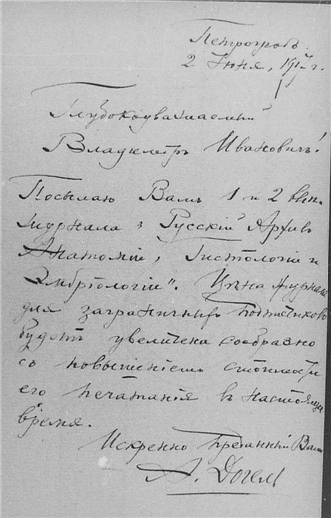 Петроградъ.
2 Іюня, 1917 г.
Глубокоуважаемый
Владиміръ Ивановичъ!
Посылаю Вамъ 1 и 2 вып.
журнала „Русскій Архивъ
Анатоміи, Гистологіи и
Эмбріологіи". Цѣна журнала
для заграничныхъ подписчиковъ
будетъ увеличена сообразно
съ повышеніемъ стоимости
его печатанія въ настоящее
время.
Искренно преданный Вамъ
А. Догель